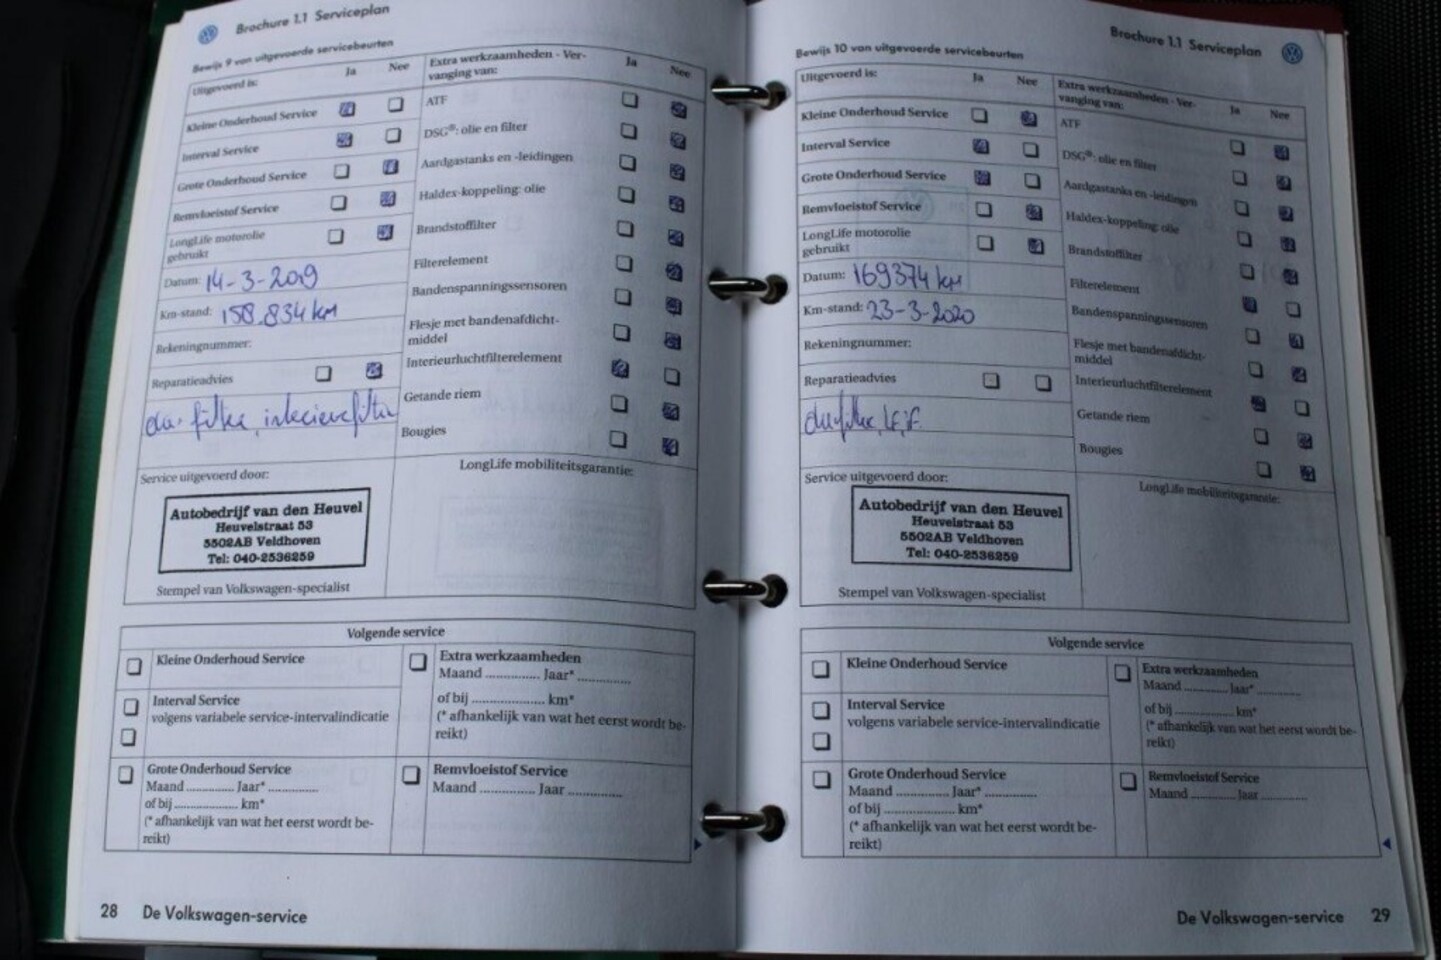 Brochure 1.1 Serviceplan
Bewijs 9 van uitgevoerde servicebeurten
Uitgevoerd is:
Ja
Nee
Kleine Onderhoud Service
Interval Service
Grote Onderhoud Service
Remvloeistof Service
LongLife motorolie
gebruikt
Datum: 14-3-2019
Km-stand: 158.834 km
Rekeningnummer:
Reparatieadvies
filter, interieurfilter
Extra werkzaamheden - Ver-
vanging van:
Ja
Nee
ATF
DSG®: olie en filter
Aardgastanks en -leidingen
Haldex-koppeling: olie
Brandstoffilter
Filterelement
Bandenspanningssensoren
Flesje met bandenafdicht-
middel
Interieurluchtfilterelement
Getande riem
Bougies
Service uitgevoerd door:
Autobedrijf van den Heuvel
Heuvelstraat 53
5502AB Veldhoven
Tel: 040-2536259
Stempel van Volkswagen-specialist
LongLife mobiliteitsgarantie:
Volgende service
Kleine Onderhoud Service
Interval Service
volgens variabele service-intervalindicatie
Grote Onderhoud Service
Maand .............. Jaar* ...............
of bij .................... km*
(* afhankelijk van wat het eerst wordt be-
reikt)
Extra werkzaamheden
Maand ............... Jaar* ...............
of bij ..................... km*
(* afhankelijk van wat het eerst wordt be-
reikt)
Remvloeistof Service
Maand ............... Jaar ...............
28 De Volkswagen-service
Brochure 1.1 Serviceplan
Bewijs 10 van uitgevoerde servicebeurten
Uitgevoerd is:
Ja
Nee
Kleine Onderhoud Service
Interval Service
Grote Onderhoud Service
Remvloeistof Service
LongLife motorolie
gebruikt
Datum: 169374 km
Km-stand: 23-3-2020
Rekeningnummer:
Reparatieadvies
Extra werkzaamheden - Ver-
vanging van:
Ja
Nee
ATF
DSG®: olie en filter
Aardgastanks en -leidingen
Haldex-koppeling: olie
Brandstoffilter
Filterelement
Bandenspanningssensoren
Flesje met bandenafdicht-
middel
Interieurluchtfilterelement
Getande riem
Bougies
Service uitgevoerd door:
Autobedrijf van den Heuvel
Heuvelstraat 53
5502AB Veldhoven
Tel: 040-2536259
Stempel van Volkswagen-specialist
LongLife mobiliteitsgarantie:
Volgende service
Kleine Onderhoud Service
Interval Service
volgens variabele service-intervalindicatie
Grote Onderhoud Service
Maand .............. Jaar* ...............
of bij .................... km*
(* afhankelijk van wat het eerst wordt be-
reikt)
Extra werkzaamheden
Maand ............ Jaar* ............
of bij .................. km*
(* afhankelijk van wat het eerst wordt be-
reikt)
Remvloeistof Service
Maand ............ Jaar ............
De Volkswagen-service 29